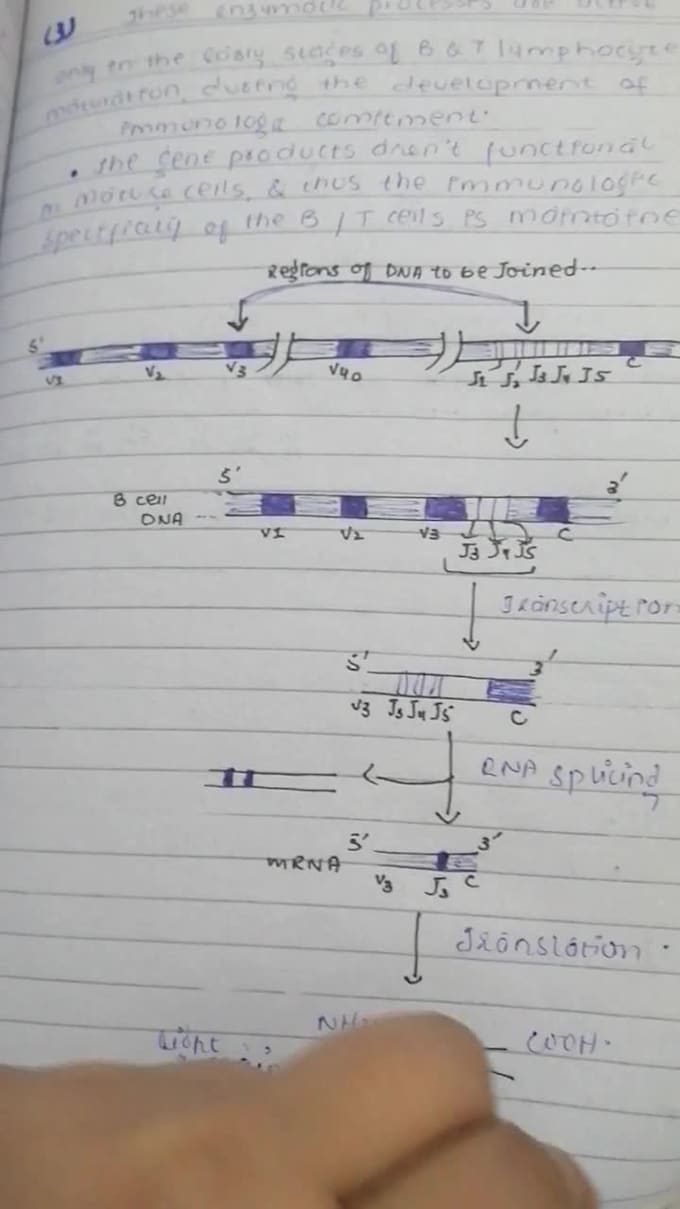 (3) These enzymatic processes are active
only in the early stages of B & T lymphocyte
maturation, during the development of
immunologic
• The gene products aren't functional
in mature cells, & thus the immunologic
of the B / T cells is
Regions of DNA to be Joined..
5'
V1 V2 V3 V40 J1 J2 J3 J4 J5 C
5' 3'
B cell
DNA --
V1 V2 V3 J3 J4 J5 C
Transcription
5' 3'
V3 J3 J4 J5 C
RNA splicing
5' 3'
mRNA
V3 J3 C
Translation.
NH
COOH.
Light